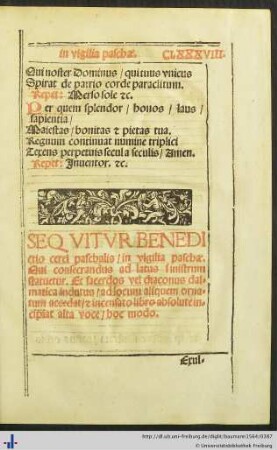 in vigilia paschæ. CLXXXVIII.
Qui noster Dominus / qui tuus vnicus
Spirat de patrio corde paraclitum.
Repet: Merso sole ⁊c.
Per quem splendor / honos / laus /
sapientia /
Maiestas / bonitas ⁊ pietas tua.
Regnum continuat numine triplici
Texens perpetuis secula seculis / Amen.
Repet: Inuentor. ⁊c.
SEQVITVR BENEDI
ctio cerei paschalis / in vigilia paschæ.
Qui consecrandus ad latus sinistrum
statuetur. Et sacerdos vel diaconus dal
matica indutus / ad locum aliquem orna
tum accedat / ⁊ incensato libro absolute in
cipiat alta voce / hoc modo.
Exul-
http://dl.ub.uni-freiburg.de/diglit/baumann1564/0387
© Universitätsbibliothek Freiburg